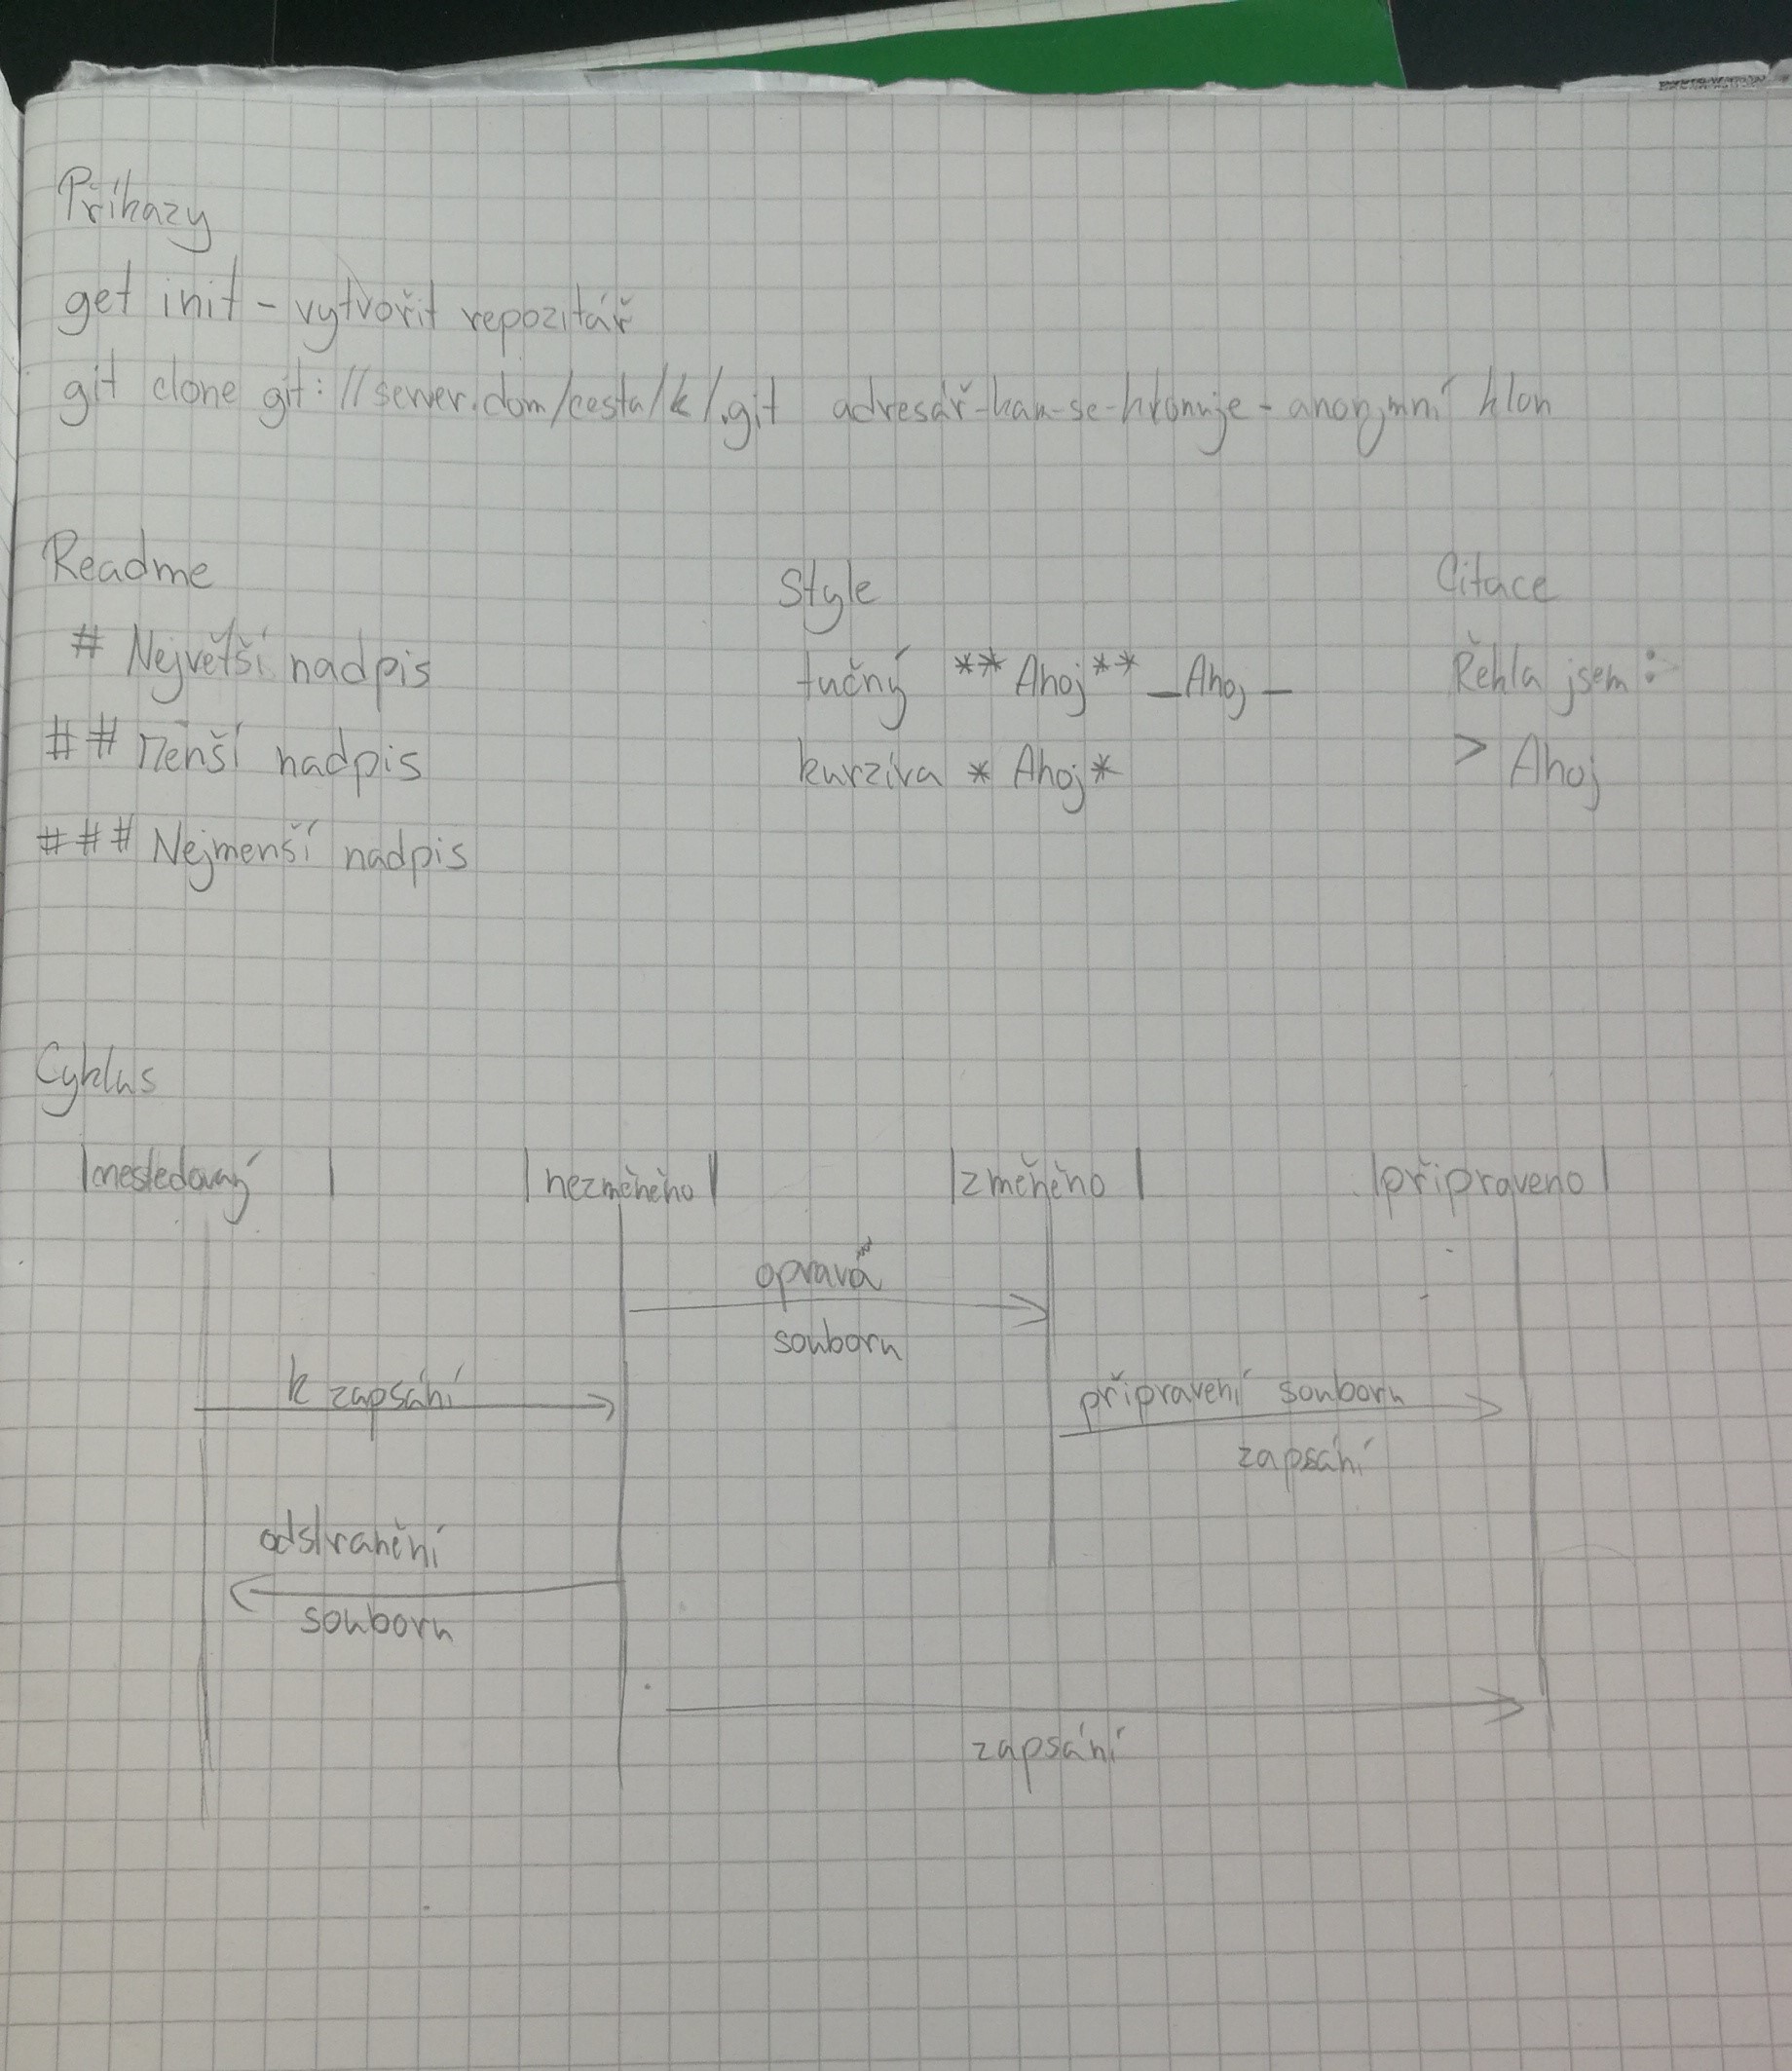 Příkazy
get init - vytvořit repozitář
git clone git://server.dom/cesta/k/.git adresář-kam-se-klonuje - anonymní klon
Readme
# Největší nadpis
## Menší nadpis
### Nejmenší nadpis
Style
tučný **Ahoj** _Ahoj_
kurzíva *Ahoj*
Citace
Řekla jsem:
> Ahoj
Cyklus
|nesledovaný | |nezměněno| |změněno | |připraveno |
oprava
souboru
k zapsání
připravení souboru
zapsání
odstranění
souboru
zapsání